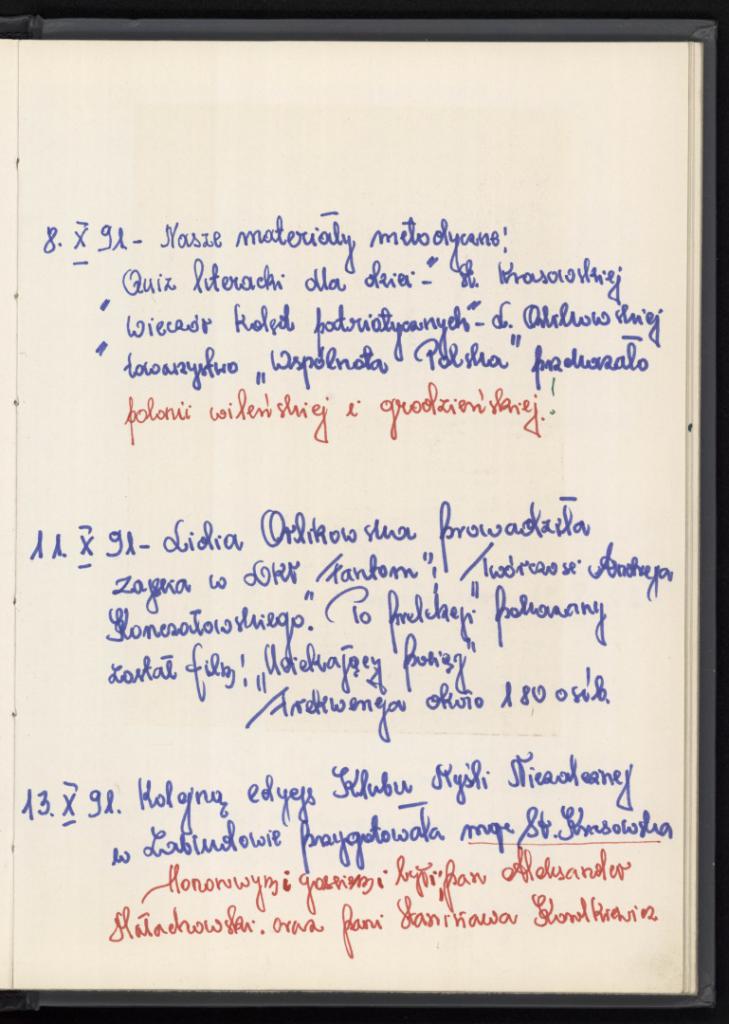 8. X 91 - Nasze materiały metodyczne!
"Quiz literacki dla dzieci -" St. Krasowskiej
"Wieczór kolęd patriotycznych" - L. Orlikowskiej
Towarzystwo "Wspólnota Polska" przekazało
polonii wileńskiej i grodzieńskiej.!
11. X 91 - Lidia Orlikowska prowadziła
zajęcia w DKF "Fantom"! "Twórczość Andreja
Konczałowskiego." Po prelekcji pokazany
został film! "Uciekający pociąg"
Frekwencja około 180 osób.
13. X 91. Kolejną edycję Klubu Myśli Niezależnej
w Zabłudowie przygotowała mgr St. Krasowska
Honorowymi gośćmi byli; pan Aleksander
Małachowski. oraz pani Stanisława